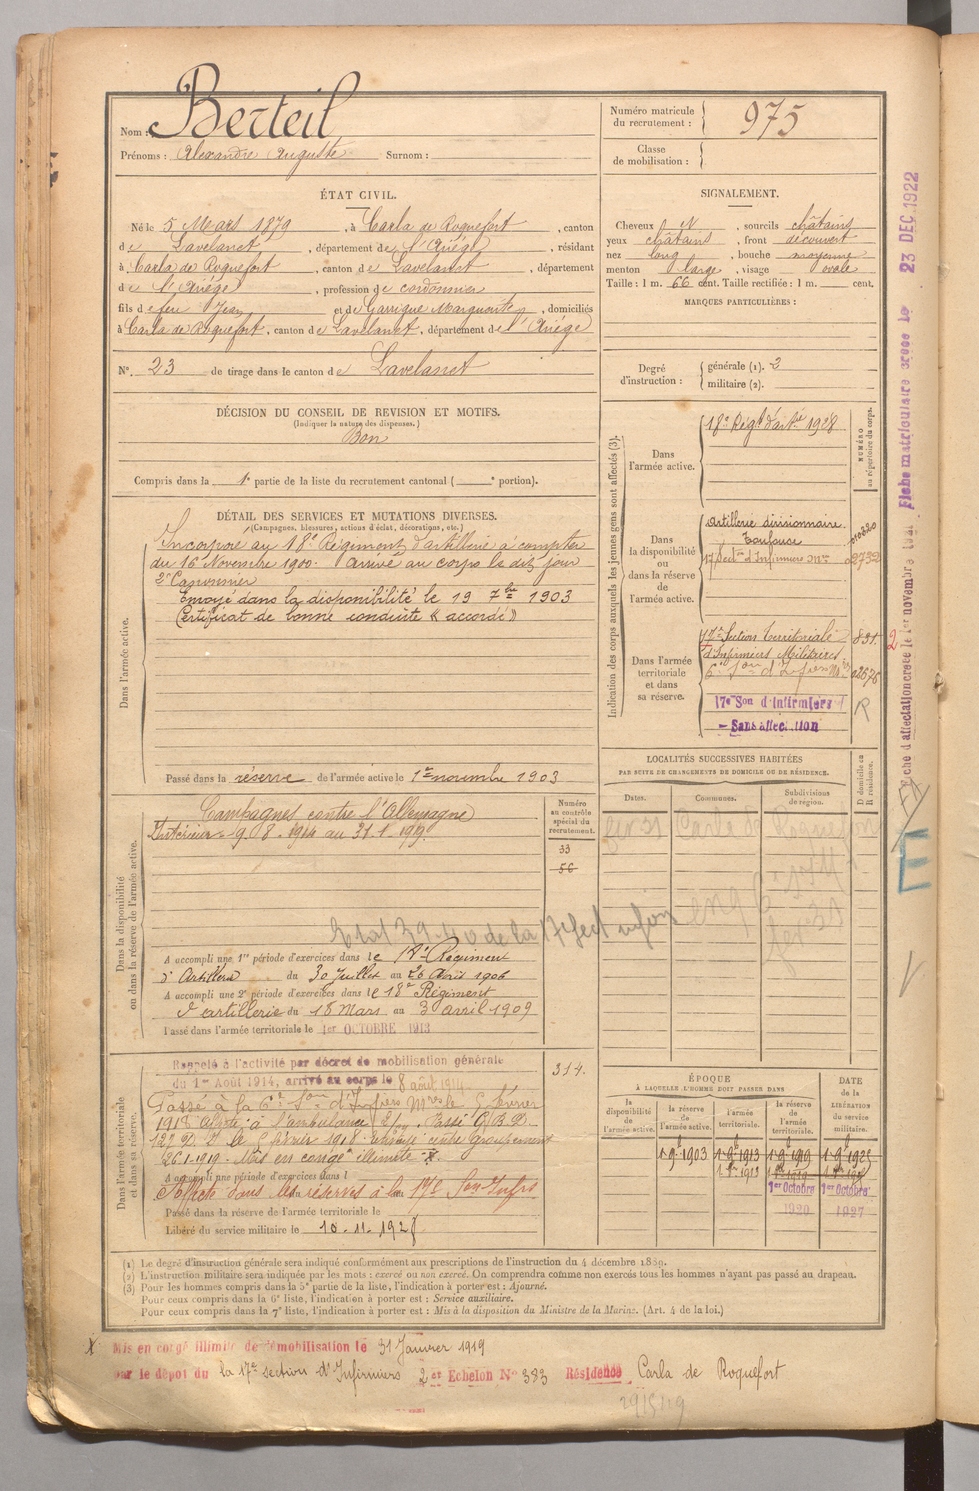 Nom : Berteil
Prénoms : Alexandre Auguste Surnom :
Numéro matricule du recrutement : 975
Classe de mobilisation :
ÉTAT CIVIL.
Né le 5 Mars 1879, à Carla de Roquefort, canton
de Lavelanet, département de l'Ariège, résidant
à Carla de Roquefort, canton de Lavelanet, département
de l'Ariège, profession de cordonnier
fils de feu Jean et de Garrigue Marguerite, domiciliés
à Carla de Roquefort, canton de Lavelanet, département de l'Ariège
N°. 23 de tirage dans le canton de Lavelanet
SIGNALEMENT.
Cheveux N, sourcils châtains
yeux châtains, front découvert
nez long, bouche moyenne
menton large, visage ovale
Taille : 1 m. 66 cent. Taille rectifiée : 1 m. cent.
MARQUES PARTICULIÈRES :
Degré d'instruction : générale (1). 2
militaire (2).
DÉCISION DU CONSEIL DE REVISION ET MOTIFS.
(Indiquer la nature des dispenses.)
Bon
Compris dans la 1e partie de la liste du recrutement cantonal ( e portion).
DÉTAIL DES SERVICES ET MUTATIONS DIVERSES.
(Campagnes, blessures, actions d'éclat, décorations, etc.)
Dans l'armée active.
Incorporé au 18e Régiment d'artillerie à compter
du 16 Novembre 1900. Arrivé au corps le dit jour
2e Canonnier
Envoyé dans la disponibilité le 19 7bre 1903
Certificat de bonne conduite « accordé »
Passé dans la réserve de l'armée active le 1er novembre 1903
Indication des corps auxquels les jeunes gens sont affectés (3).
NUMÉRO au répertoire du corps.
Dans l'armée active.
18e Régt d'artie 1928
Dans la disponibilité ou dans la réserve de l'armée active.
Artillerie divisionnaire
Toulouse
Dans l'armée territoriale et dans sa réserve.
17e Section Territoriale 831.
d'Infirmiers Militaires
17e Son d'Infirmiers
Sans affectation
R
Dans la disponibilité ou dans la réserve de l'armée active.
Numéro au contrôle spécial du recrutement.
Campagnes contre l'Allemagne
Intérieur 9.8.1914 au 31.1.1919.
33
56
A accompli une 1re période d'exercices dans le 18e Régiment
d'Artillerie du 30 Juillet au 26 Août 1906
A accompli une 2e période d'exercices dans le 18e Régiment
d'artillerie du 18 Mars au 3 avril 1909
Passé dans l'armée territoriale le 1er OCTOBRE 1913
LOCALITÉS SUCCESSIVES HABITÉES
PAR SUITE DE CHANGEMENTS DE DOMICILE OU DE RÉSIDENCE.
Dates. Communes. Subdivisions de région. D domicile ou R résidence.
Carla de Roquefort
Dans l'armée territoriale et dans sa réserve.
Rappelé à l'activité par décret de mobilisation générale
du 1er Août 1914, arrivé au corps le 8 août 1914
314.
A accompli une période d'exercices dans l
Affecté dans les réserves à la 17e Son Infrs
Passé dans la réserve de l'armée territoriale le
Libéré du service militaire le 10.11.1928
ÉPOQUE
À LAQUELLE L'HOMME DOIT PASSER DANS
DATE de la LIBÉRATION du service militaire.
la disponibilité de l'armée active. la réserve de l'armée active. l'armée territoriale. la réserve de l'armée territoriale.
1er Octobre 1er Octobre
1920 1927
(1) Le degré d'instruction générale sera indiqué conformément aux prescriptions de l'instruction du 4 décembre 1889.
(2) L'instruction militaire sera indiquée par les mots : exercé ou non exercé. On comprendra comme non exercés tous les hommes n'ayant pas passé au drapeau.
(3) Pour les hommes compris dans la 5e partie de la liste, l'indication à porter est : Ajourné.
Pour ceux compris dans la 6e liste, l'indication à porter est : Service auxiliaire.
Pour ceux compris dans la 7e liste, l'indication à porter est : Mis à la disposition du Ministre de la Marine. (Art. 4 de la loi.)
X Mis en congé illimité de démobilisation le 31 Janvier 1919
par le dépôt du la 17e section d'Infirmiers 2er Echelon N° 383 Résidence Carla de Roquefort
Fiche matriculaire créée le 23 DEC. 1922
Fiche d'affectation créée le 1er novembre
E